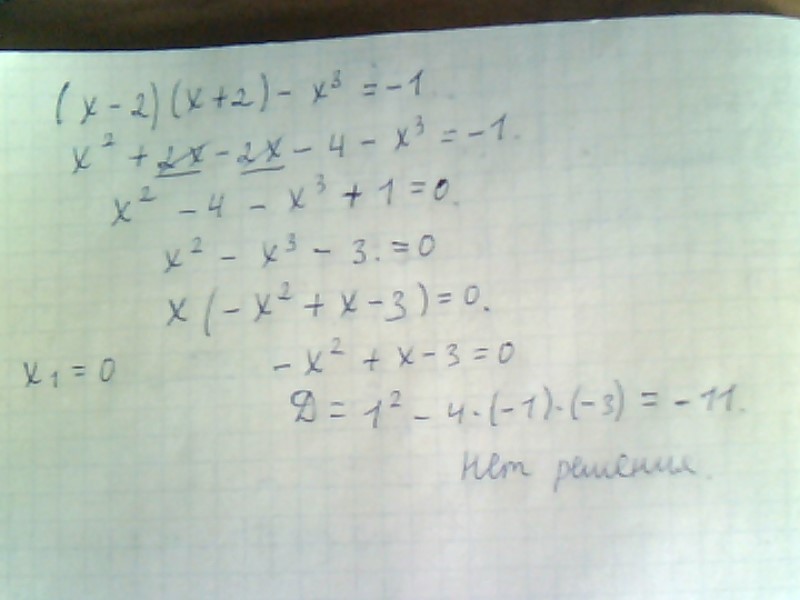 (x-2)(x+2)- x³ =-1.
x² + 2x - 2x - 4 - x³ = -1.
x² - 4 - x³ + 1 = 0.
x² - x³ - 3. = 0
x(-x² + x - 3) = 0.
x₁ = 0 -x² + x - 3 = 0
D = 1² - 4·(-1)·(-3) = -11.
Нет решения.